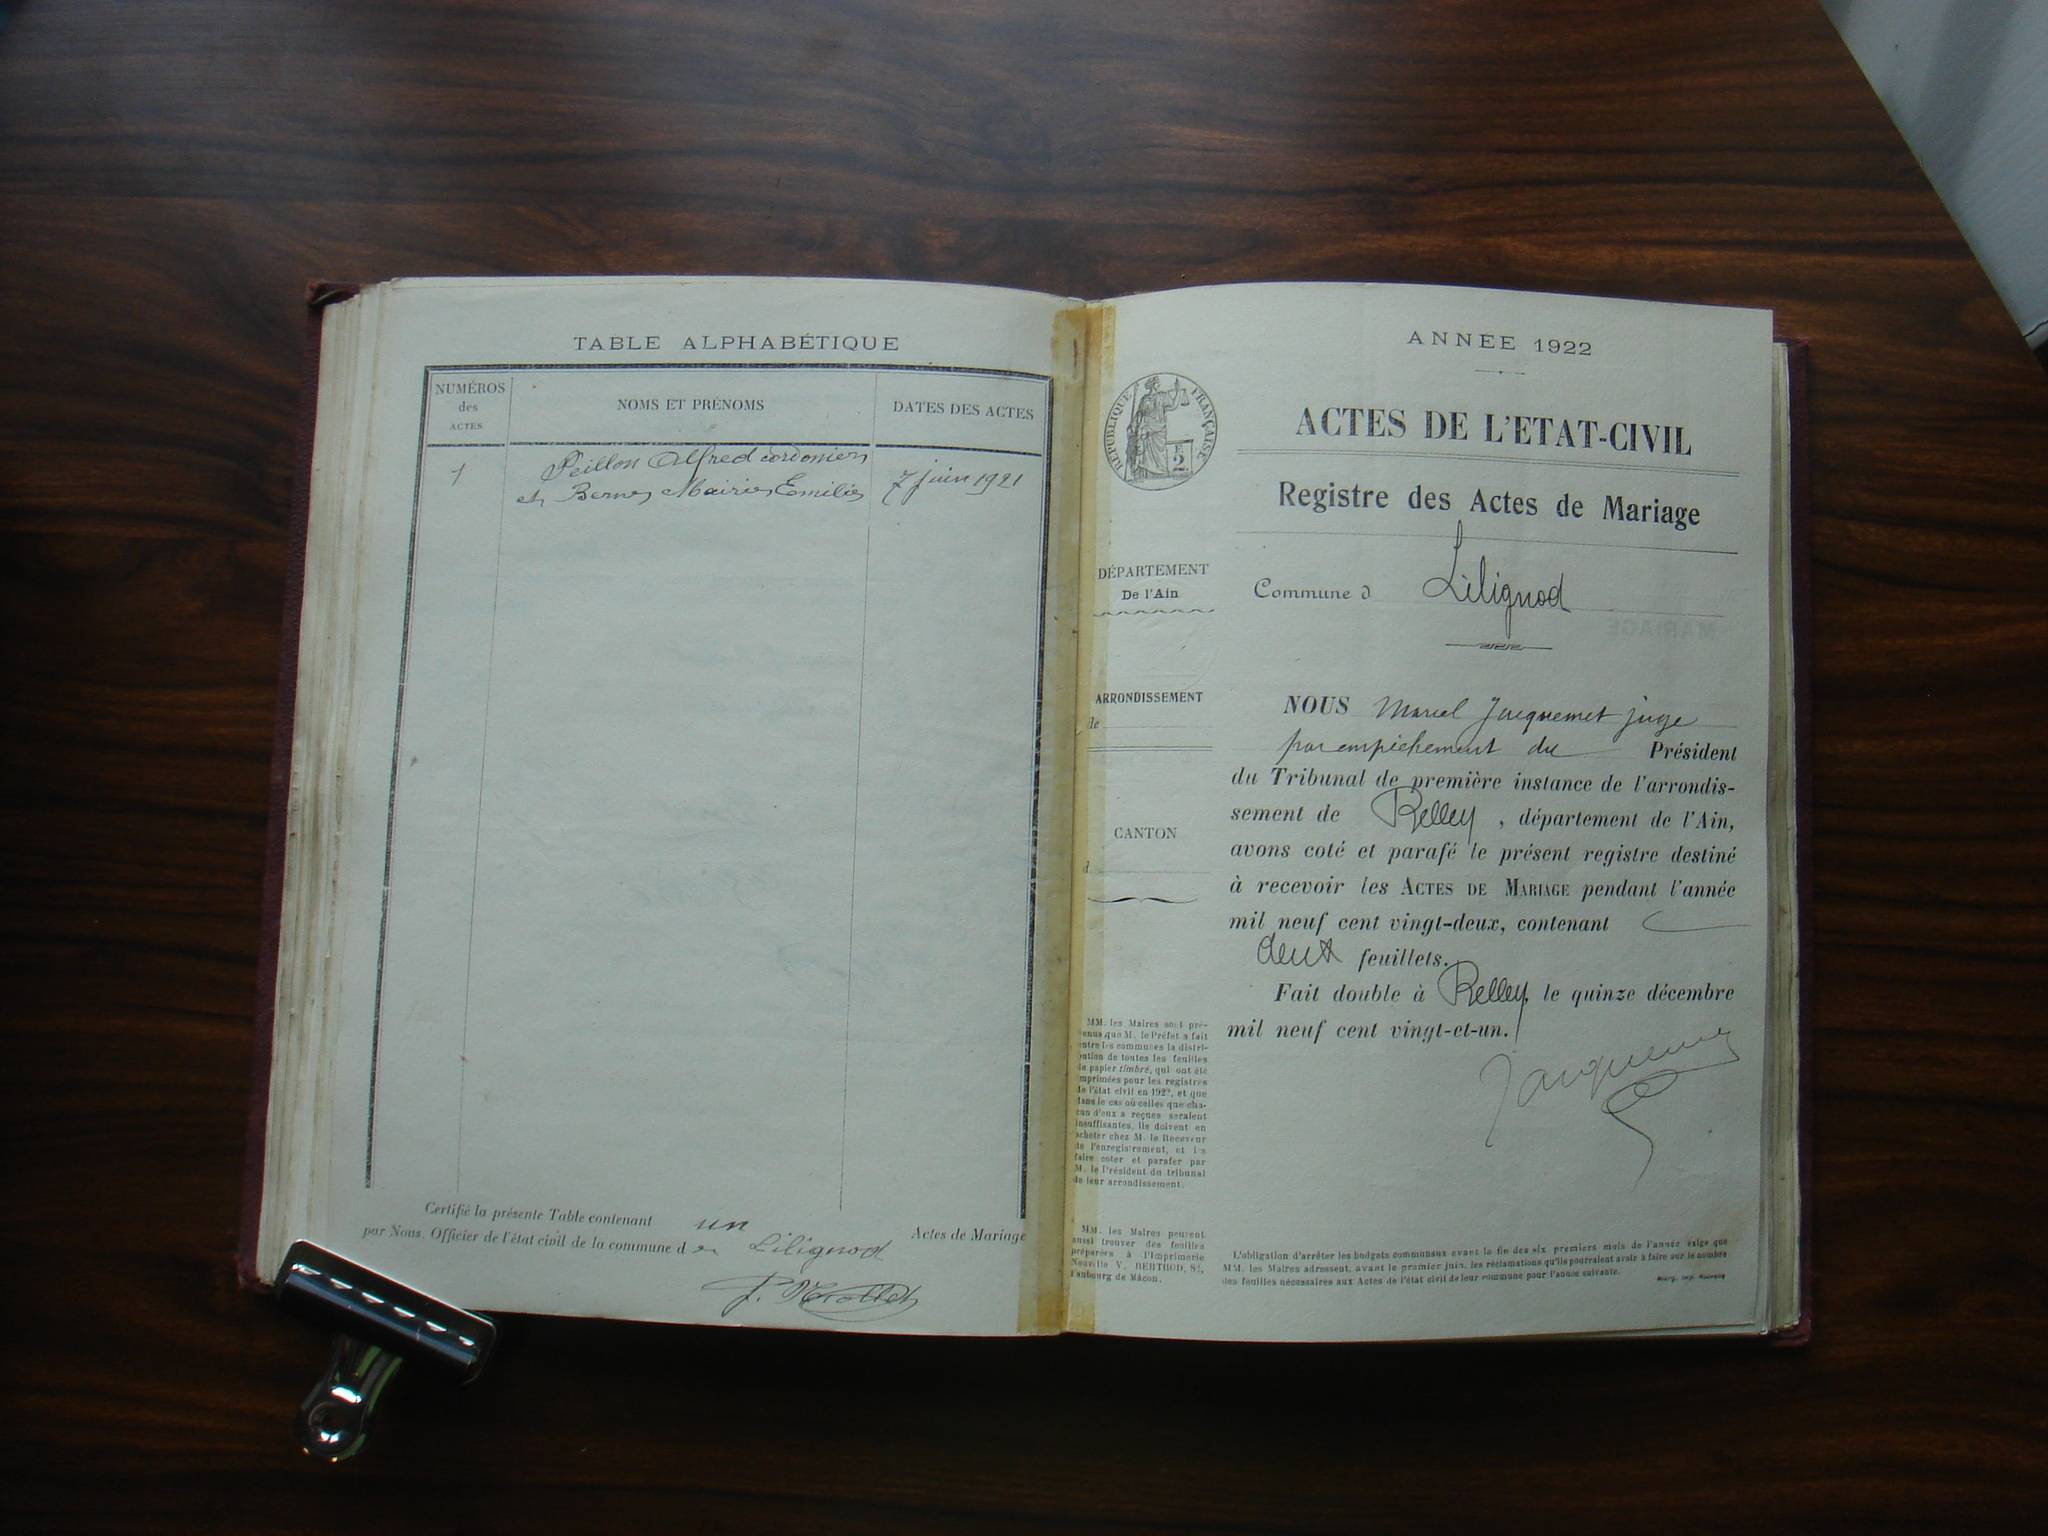 TABLE ALPHABÉTIQUE
NUMÉROS
des
ACTES
NOMS ET PRÉNOMS
DATES DES ACTES
1
Peillon Alfred cordonier
et Berne Mairie Emilie
7 juin 1921
Certifié la présente Table contenant un Actes de Mariage
par Nous, Officier de l'état civil de la commune d e Lilignod
ANNÉE 1922
RÉPUBLIQUE FRANÇAISE
2
ACTES DE L'ETAT-CIVIL
Registre des Actes de Mariage
DÉPARTEMENT
De l'Ain
Commune d Lilignod
ARRONDISSEMENT
de
CANTON
d
NOUS Marcel Jacquemet juge
par empêchement du Président
du Tribunal de première instance de l'arrondis-
sement de Belley, département de l'Ain,
avons coté et parafé le présent registre destiné
à recevoir les ACTES DE MARIAGE pendant l'année
mil neuf cent vingt-deux, contenant
deux feuillets.
Fait double à Belley, le quinze décembre
mil neuf cent vingt-et-un.
Jacquemet
MM. les Maires sont pré-
venus que M. le Préfet a fait
entre les communes la distri-
bution de toutes les feuilles
de papier timbré, qui ont été
imprimées pour les registres
de l'état civil en 1922, et que
dans le cas où celles que cha-
cun d'eux a reçues seraient
insuffisantes, ils doivent en
acheter chez M. le Receveur
de l'enregistrement, et les
faire coter et parafer par
M. le Président du tribunal
de leur arrondissement.
MM. les Maires peuvent
aussi trouver des feuilles
préparées à l'Imprimerie
Nouvelle V. BERTHOD,
Faubourg de Mâcon.
L'obligation d'arrêter les budgets communaux avant la fin des six premiers mois de l'année exige que
MM. les Maires adressent, avant le premier juin, les réclamations qu'ils pourraient avoir à faire sur le nombre
des feuilles nécessaires aux Actes de l'état civil de leur commune pour l'année suivante.
Bourg, Imp. Nouvelle